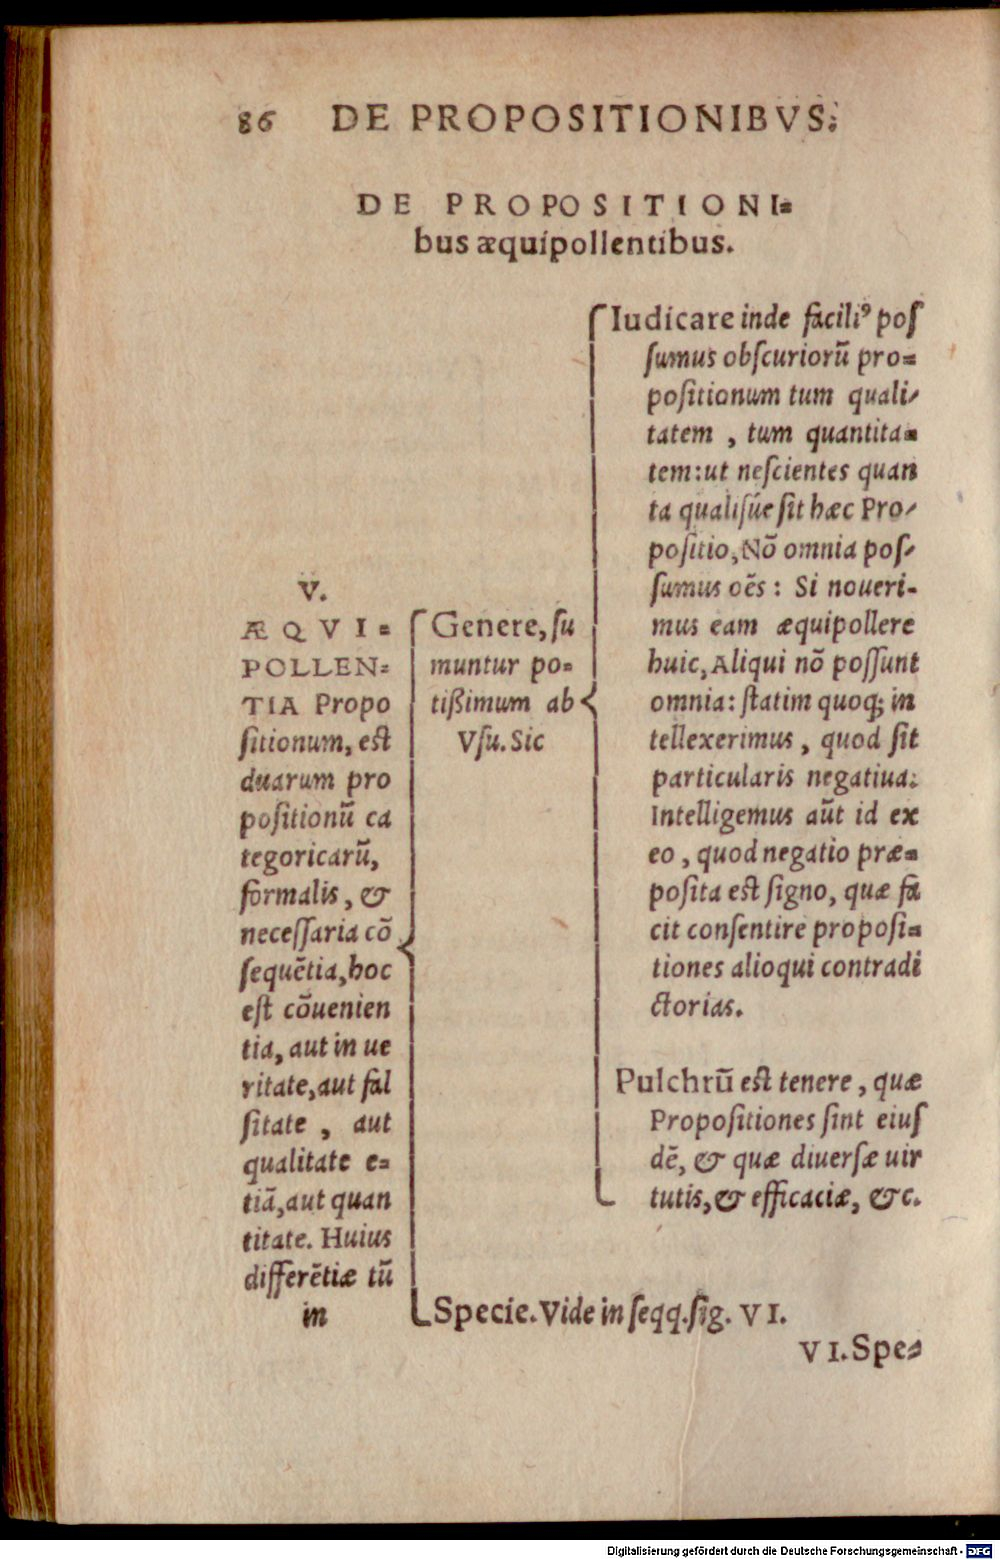 86 DE PROPOSITIONIBVS.
DE PROPOSITIONI=
bus æquipollentibus.
V.
ÆQVI=
POLLEN=
TIA Propo
ſitionum, eſt
duarum pro
poſitionũ ca
tegoricarũ,
formalis, &
neceſſaria cõ
ſequẽtia, hoc
eſt cõuenien
tia, aut in ue
ritate, aut fal
ſitate, aut
qualitate e=
tiã, aut quan
titate. Huius
differẽtiæ tũ
in
Genere, ſu
muntur po=
tißimum ab
Vſu. Sic
Iudicare inde faciliꝰ poſ
ſumus obſcuriorũ pro=
poſitionum tum quali/
tatem, tum quantita=
tem: ut neſcientes quan
ta qualiſúe ſit hæc Pro/
poſitio, Nõ omnia poſ/
ſumus oẽs: Si noueri-
mus eam æquipollere
huic, Aliqui nõ poſſunt
omnia: ſtatim quoq; in
tellexerimus, quod ſit
particularis negatiua:
Intelligemus aũt id ex
eo, quod negatio præ=
poſita eſt ſigno, quæ fa
cit conſentire propoſi=
tiones alioqui contradi
ctorias.
Pulchrũ eſt tenere, quæ
Propoſitiones ſint eiuſ
dẽ, & quæ diuerſæ uir
tutis, & efficaciæ, &c.
Specie. Vide in ſeqq. ſig. VI.
VI. Spe=
Digitalisierung gefördert durch die Deutsche Forschungsgemeinschaft - DFG